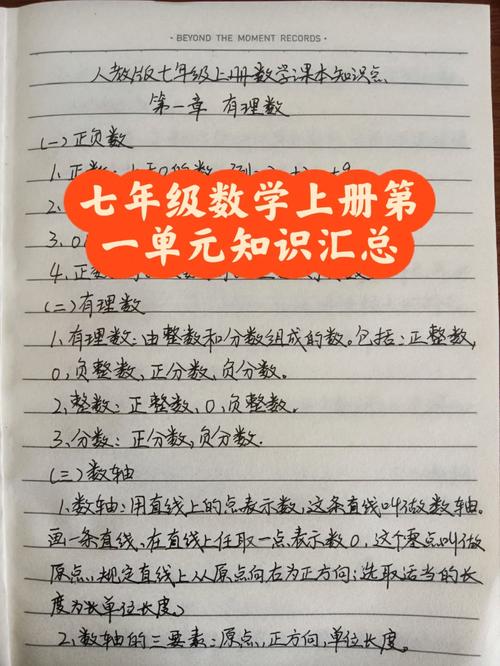 · BEYOND THE MOMENT RECORDS ·
人教版七年级上册数学课本知识点
第一章 有理数
(一)正负数
1、正
七年级数学上册第
一单元知识汇总
2、
3、0
4、正
(二)有理数
1、有理数:由整数和分数组成的数。包括:正整数,
0,负整数,正分数,负分数。
2、整数:正整数,0,负整数。
3、分数:正分数,负分数.
(三)数轴
1、数轴:用直线上的点表示数,这条直线叫做数轴。
画一条直线,在直线上任取一点表示数0,这个零点叫做
原点,规定直线上从原点向右为正方向;选取适当的长
度为单位长度。)
2、数轴的三要素:原点,正方向,单位长度。